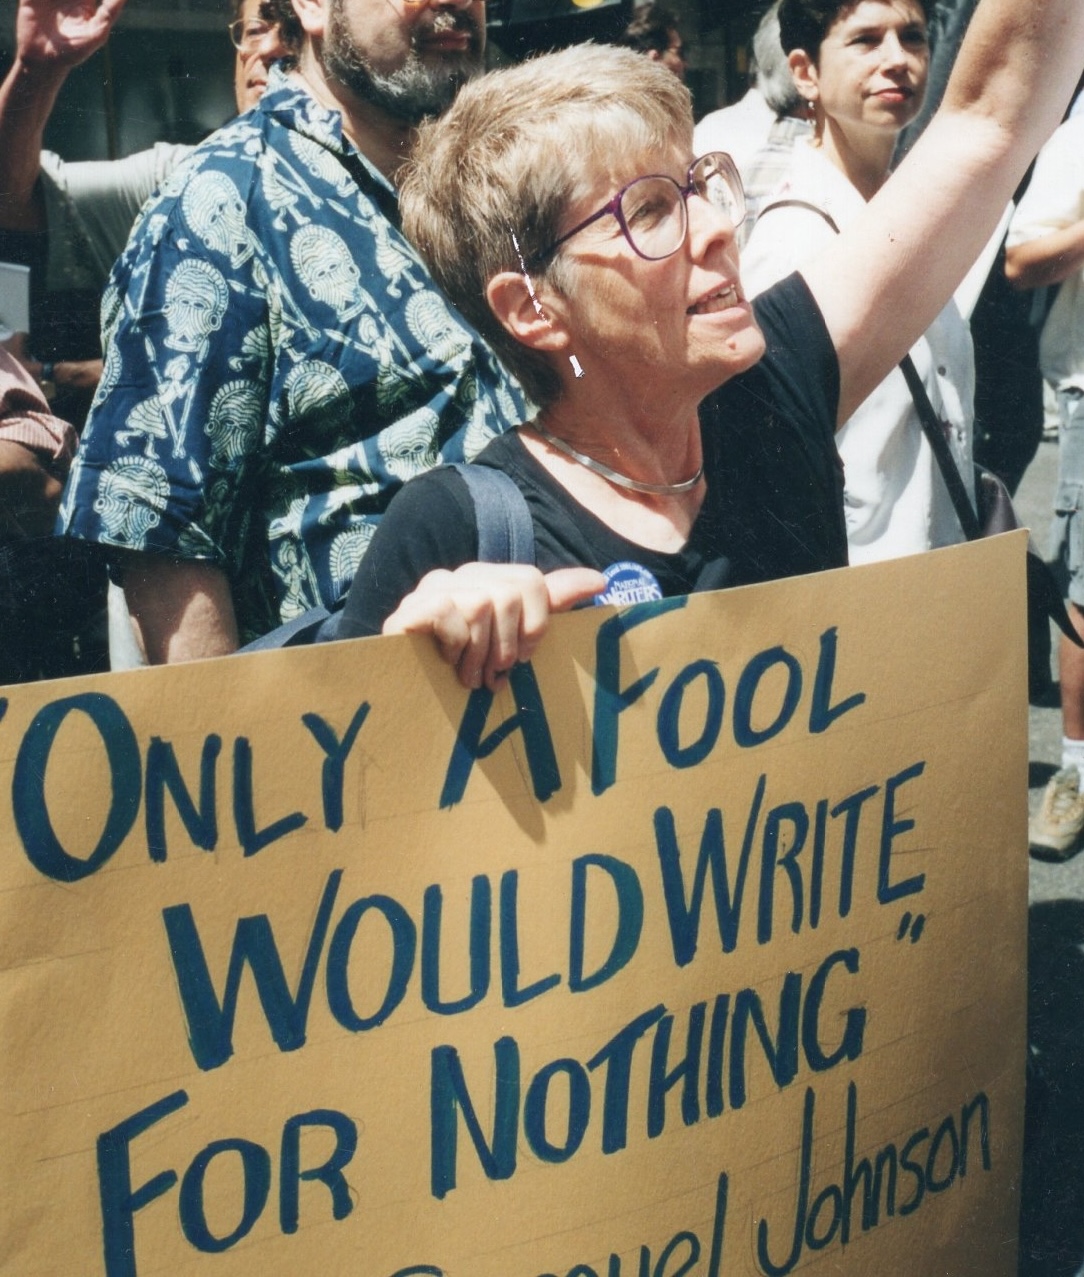 NATIONAL
WRITERS
"ONLY A FOOL
WOULD WRITE
FOR NOTHING"
Samuel Johnson